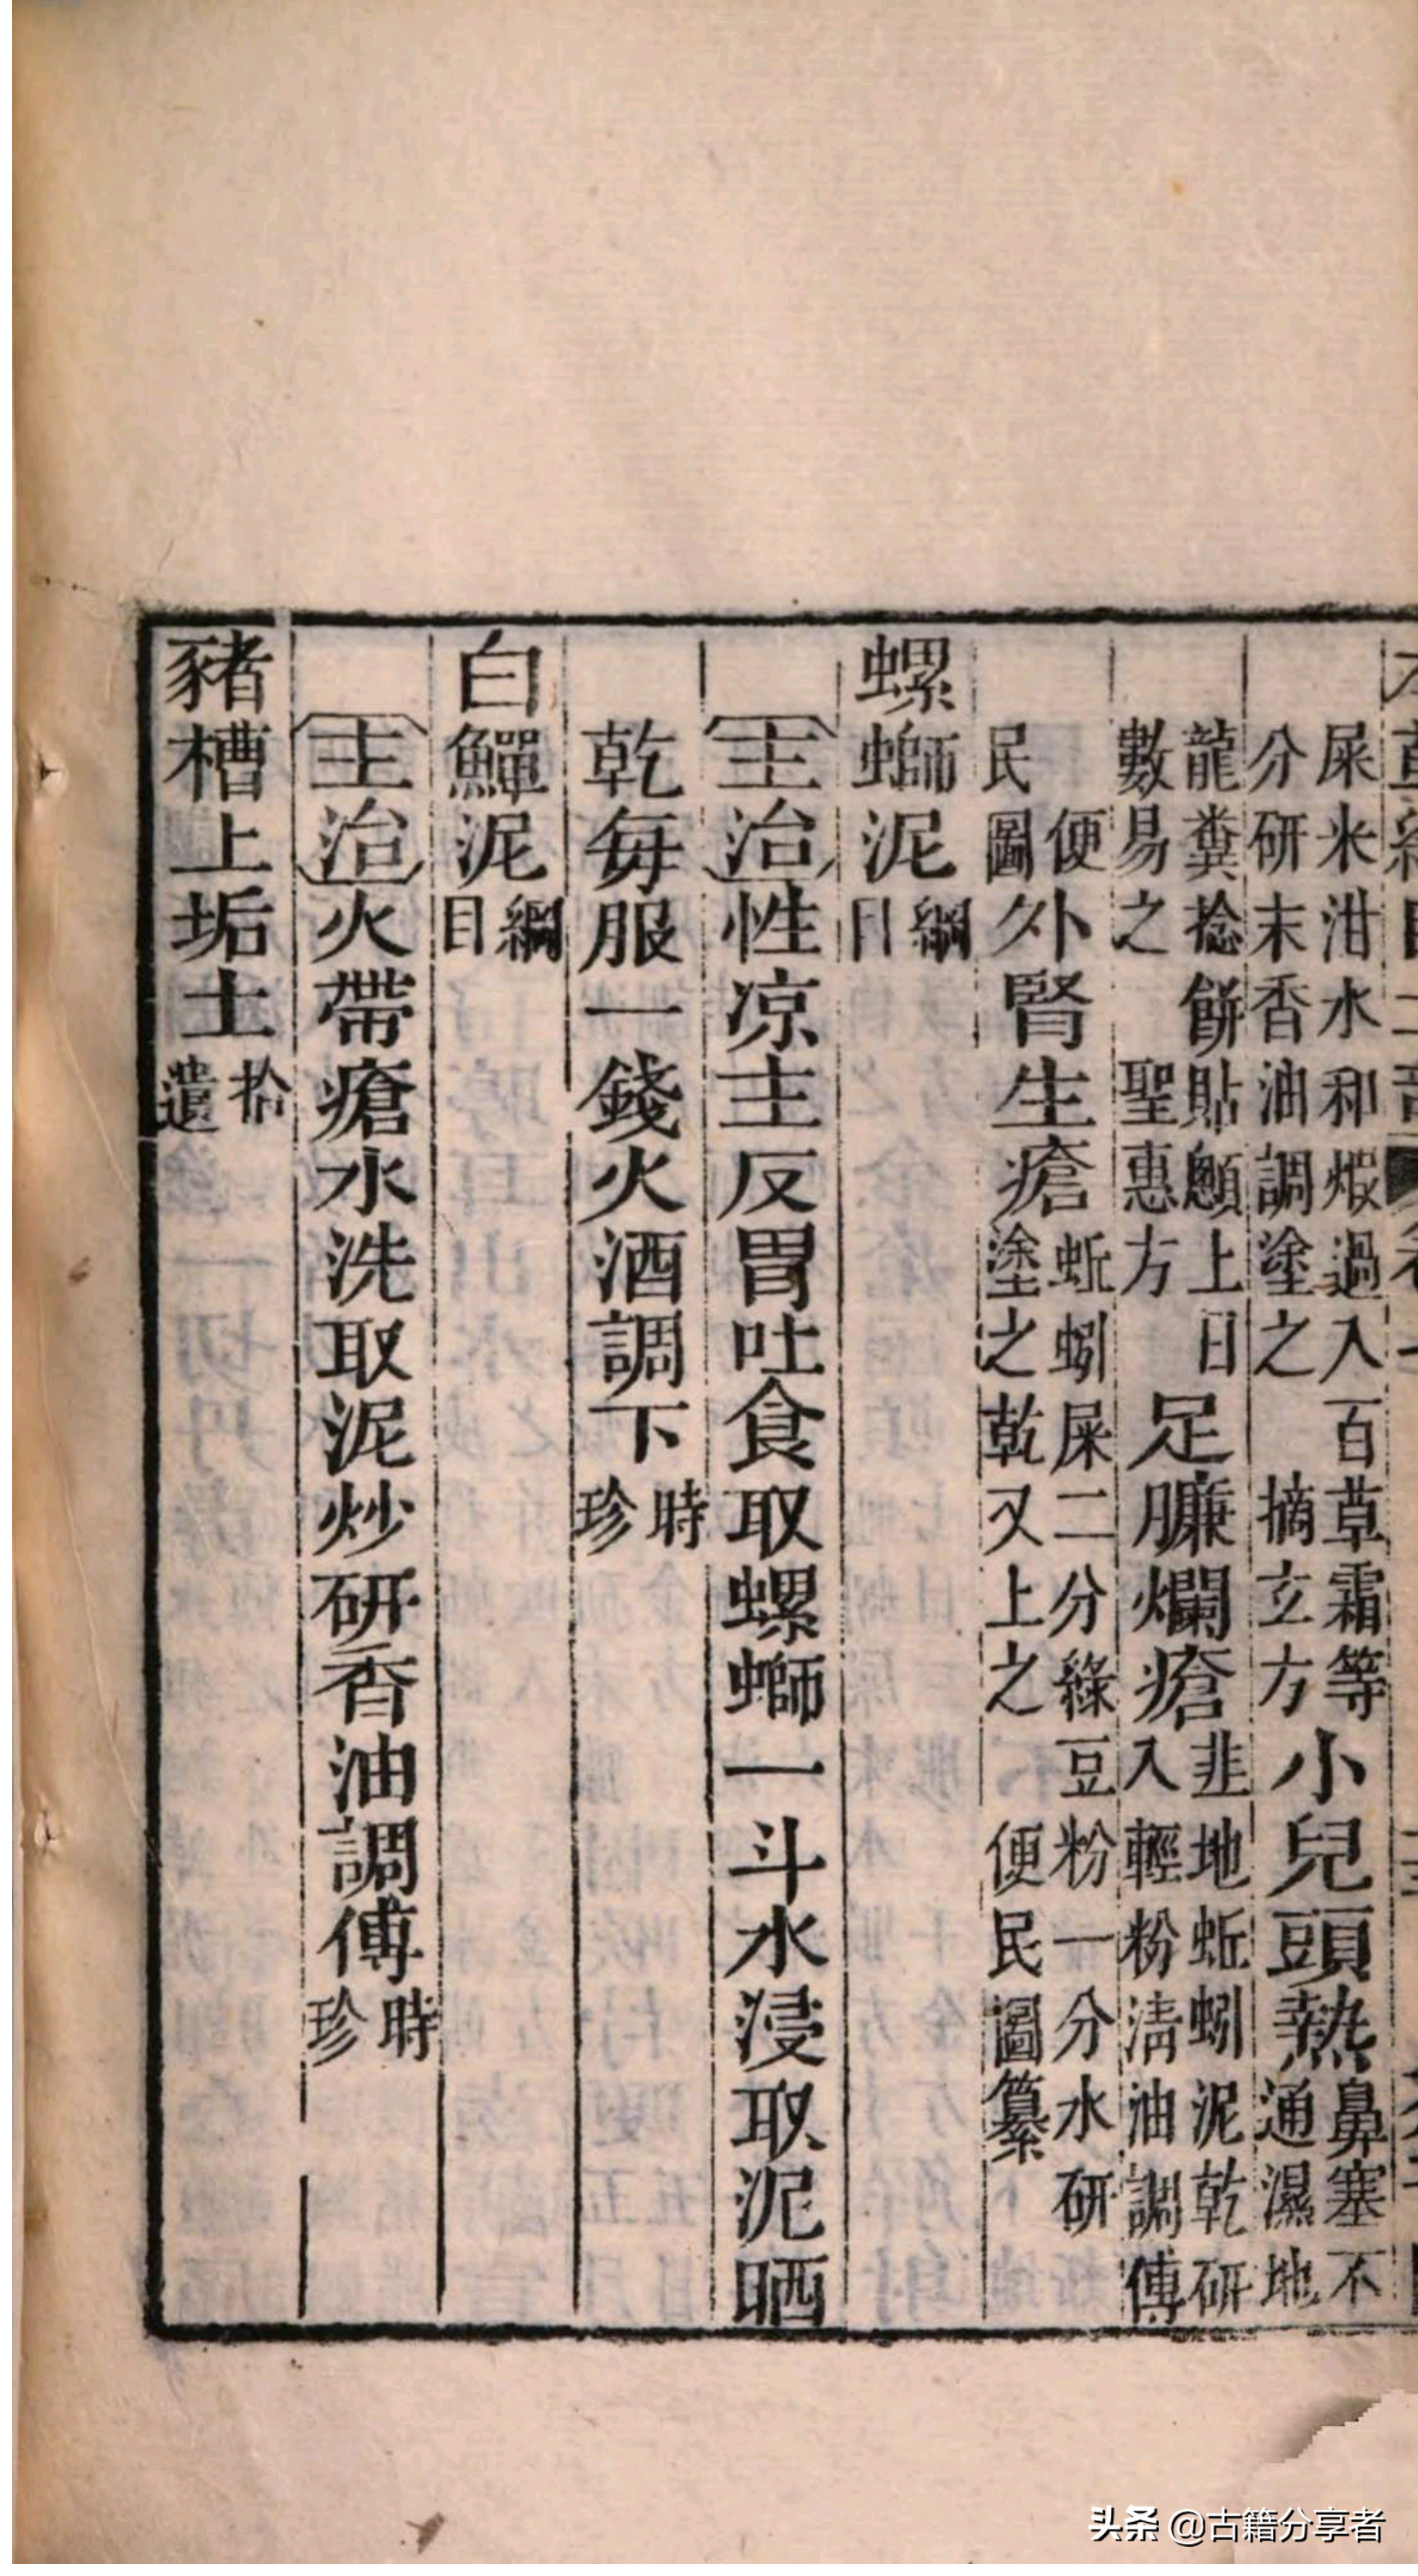 屎米泔水和煆過入百草霜等分研末香油調塗之 摘玄方 小兒頭熱鼻塞不通濕地
龍糞捻餅貼顖上日數易之 聖惠方 足臁爛瘡韭地蚯蚓泥乾研入輕粉清油調傅
便民圖 外腎生瘡蚯蚓屎二分綠豆粉一分水研塗之乾又上之 便民圖纂
螺螄泥綱目
主治性凉主反胃吐食取螺螄一斗水浸取泥晒
乾每服一錢火酒調下時珍
白鱓泥綱目
主治火帶瘡水洗取泥炒研香油調傅時珍
豬槽上垢土拾遺
头条 @古籍分享者